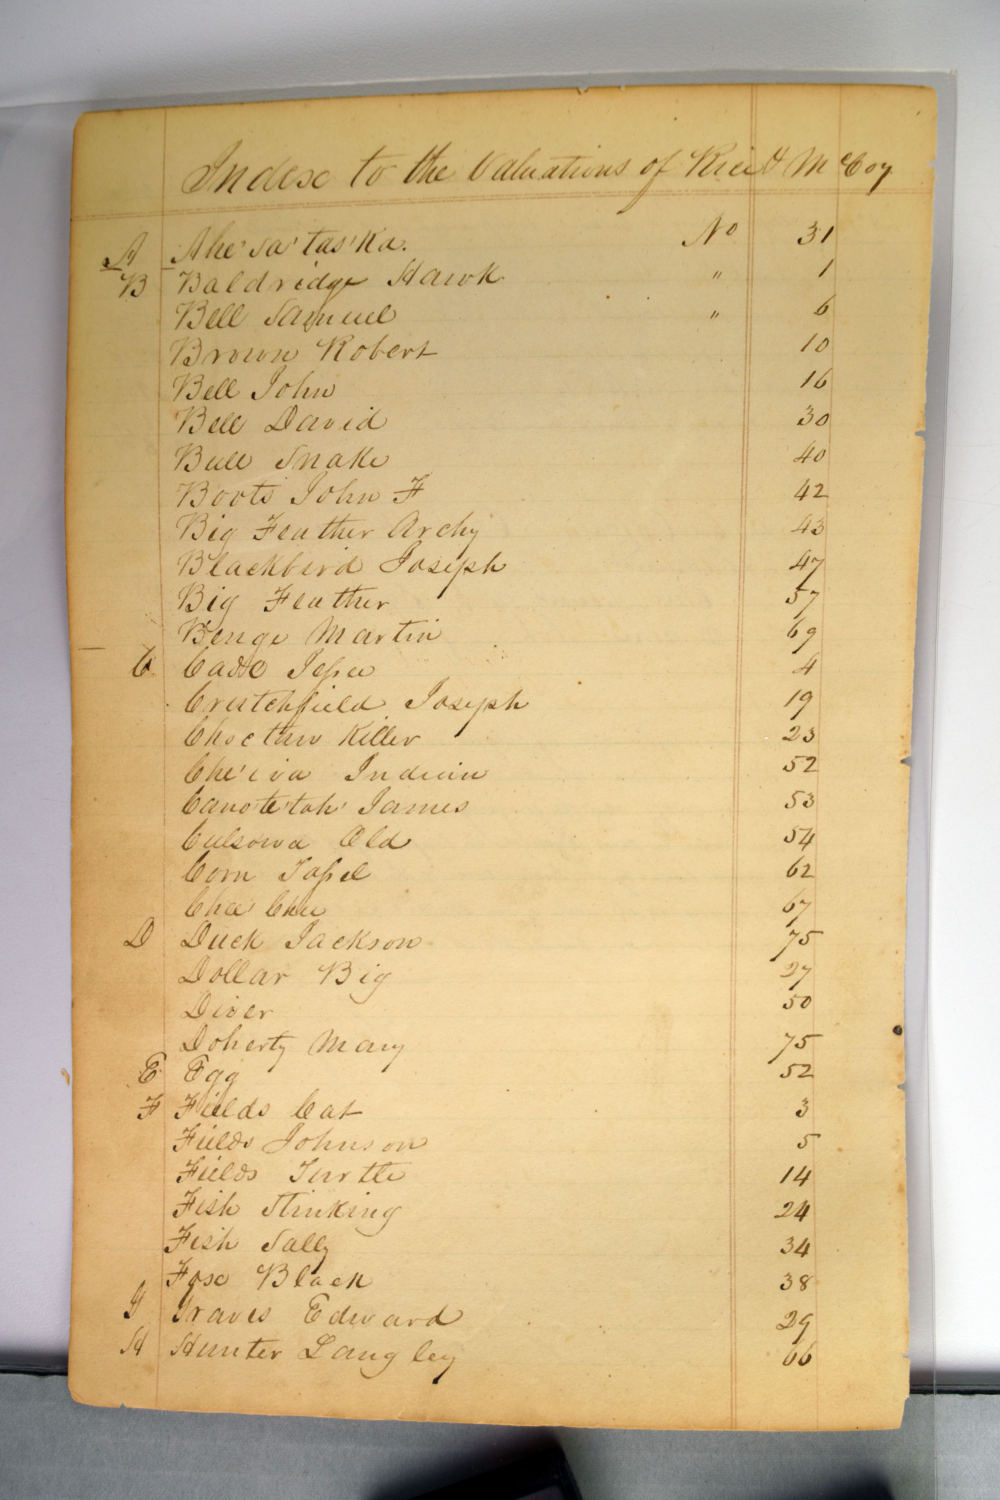 Index to the Valuations of Rice & McCoy
A Ahe'sa'tas'Ka. No 31
B Baldridge Hawk " 1
Bell Samuel " 6
Brown Robert 10
Bell John 16
Bell David 30
Bull Snake 40
Boots John F 42
Big Feather Archy 43
Blackbird Joseph 47
Big Feather 57
Benge Martin 69
C Caddo Jesse 4
Crutchfield Joseph 19
Choctaw Killer 23
Che'iva Indian 52
Canote'toh' James 53
Culsowa Old 54
Corn Tassel 62
Chee Chu 67
D Duck Jackson 75
Dollar Big 27
Diver 50
Doherty Mary 75
E Egg 52
F Fields Cat 3
Fields Johnson 5
Fields Turtle 14
Fish Stinking 24
Fish Sally 34
Fox Black 38
G Graves Edward 29
H Hunter Langley 66